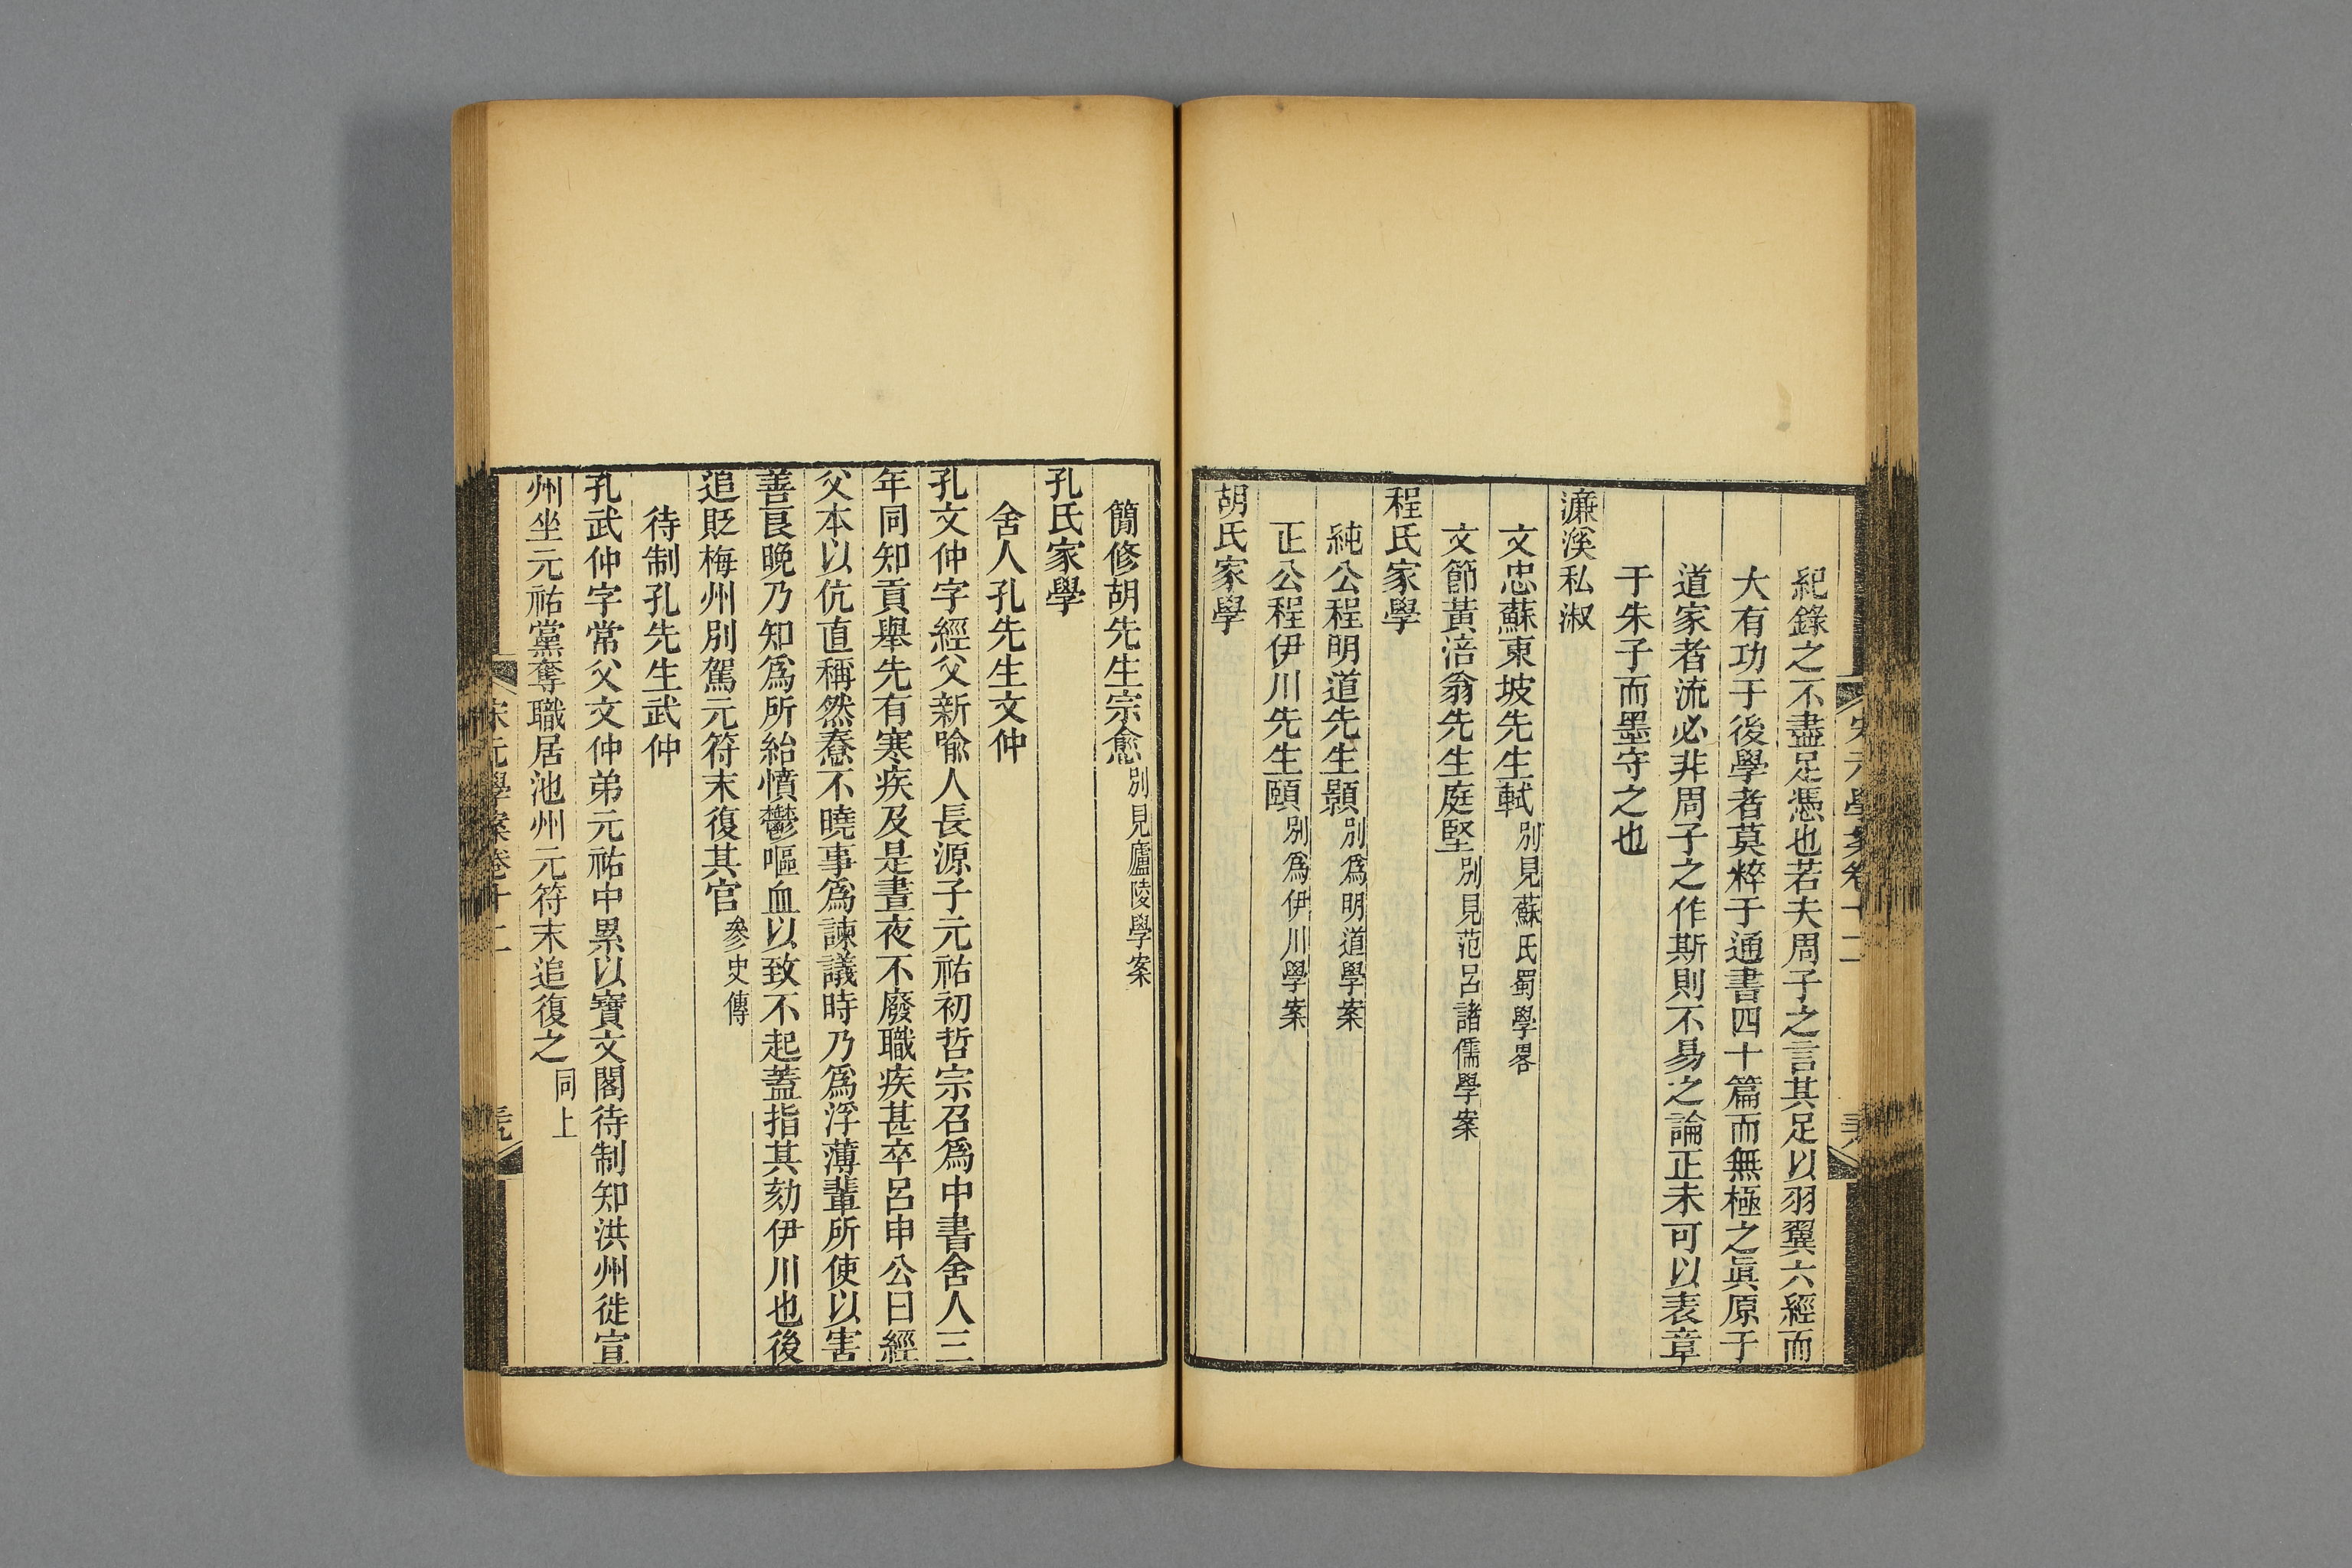 紀錄之不盡足憑也若夫周子之言其足以羽翼六經而
大有功于後學者莫粹于通書四十篇而無極之眞原于
道家者流必非周子之作斯則不易之論正未可以表章
于朱子而墨守之也
濂溪私淑
文忠蘇東坡先生軾別見蘇氏蜀學畧
文節黃涪翁先生庭堅別見范呂諸儒學案
程氏家學
純公程明道先生顥別爲明道學案
正公程伊川先生頤別爲伊川學案
胡氏家學
簡修胡先生宗愈別見廬陵學案
孔氏家學
舍人孔先生文仲
孔文仲字經父新喻人長源子元祐初哲宗召爲中書舍人三
年同知貢舉先有寒疾及是晝夜不廢職疾甚卒呂申公曰經
父本以伉直稱然惷不曉事爲諫議時乃爲浮薄輩所使以害
善良晚乃知爲所紿憤鬱嘔血以致不起蓋指其劾伊川也後
追貶梅州別駕元符末復其官參史傳
待制孔先生武仲
孔武仲字常父文仲弟元祐中累以寶文閣待制知洪州徙宣
州坐元祐黨奪職居池州元符末追復之同上
宋元學案卷十二